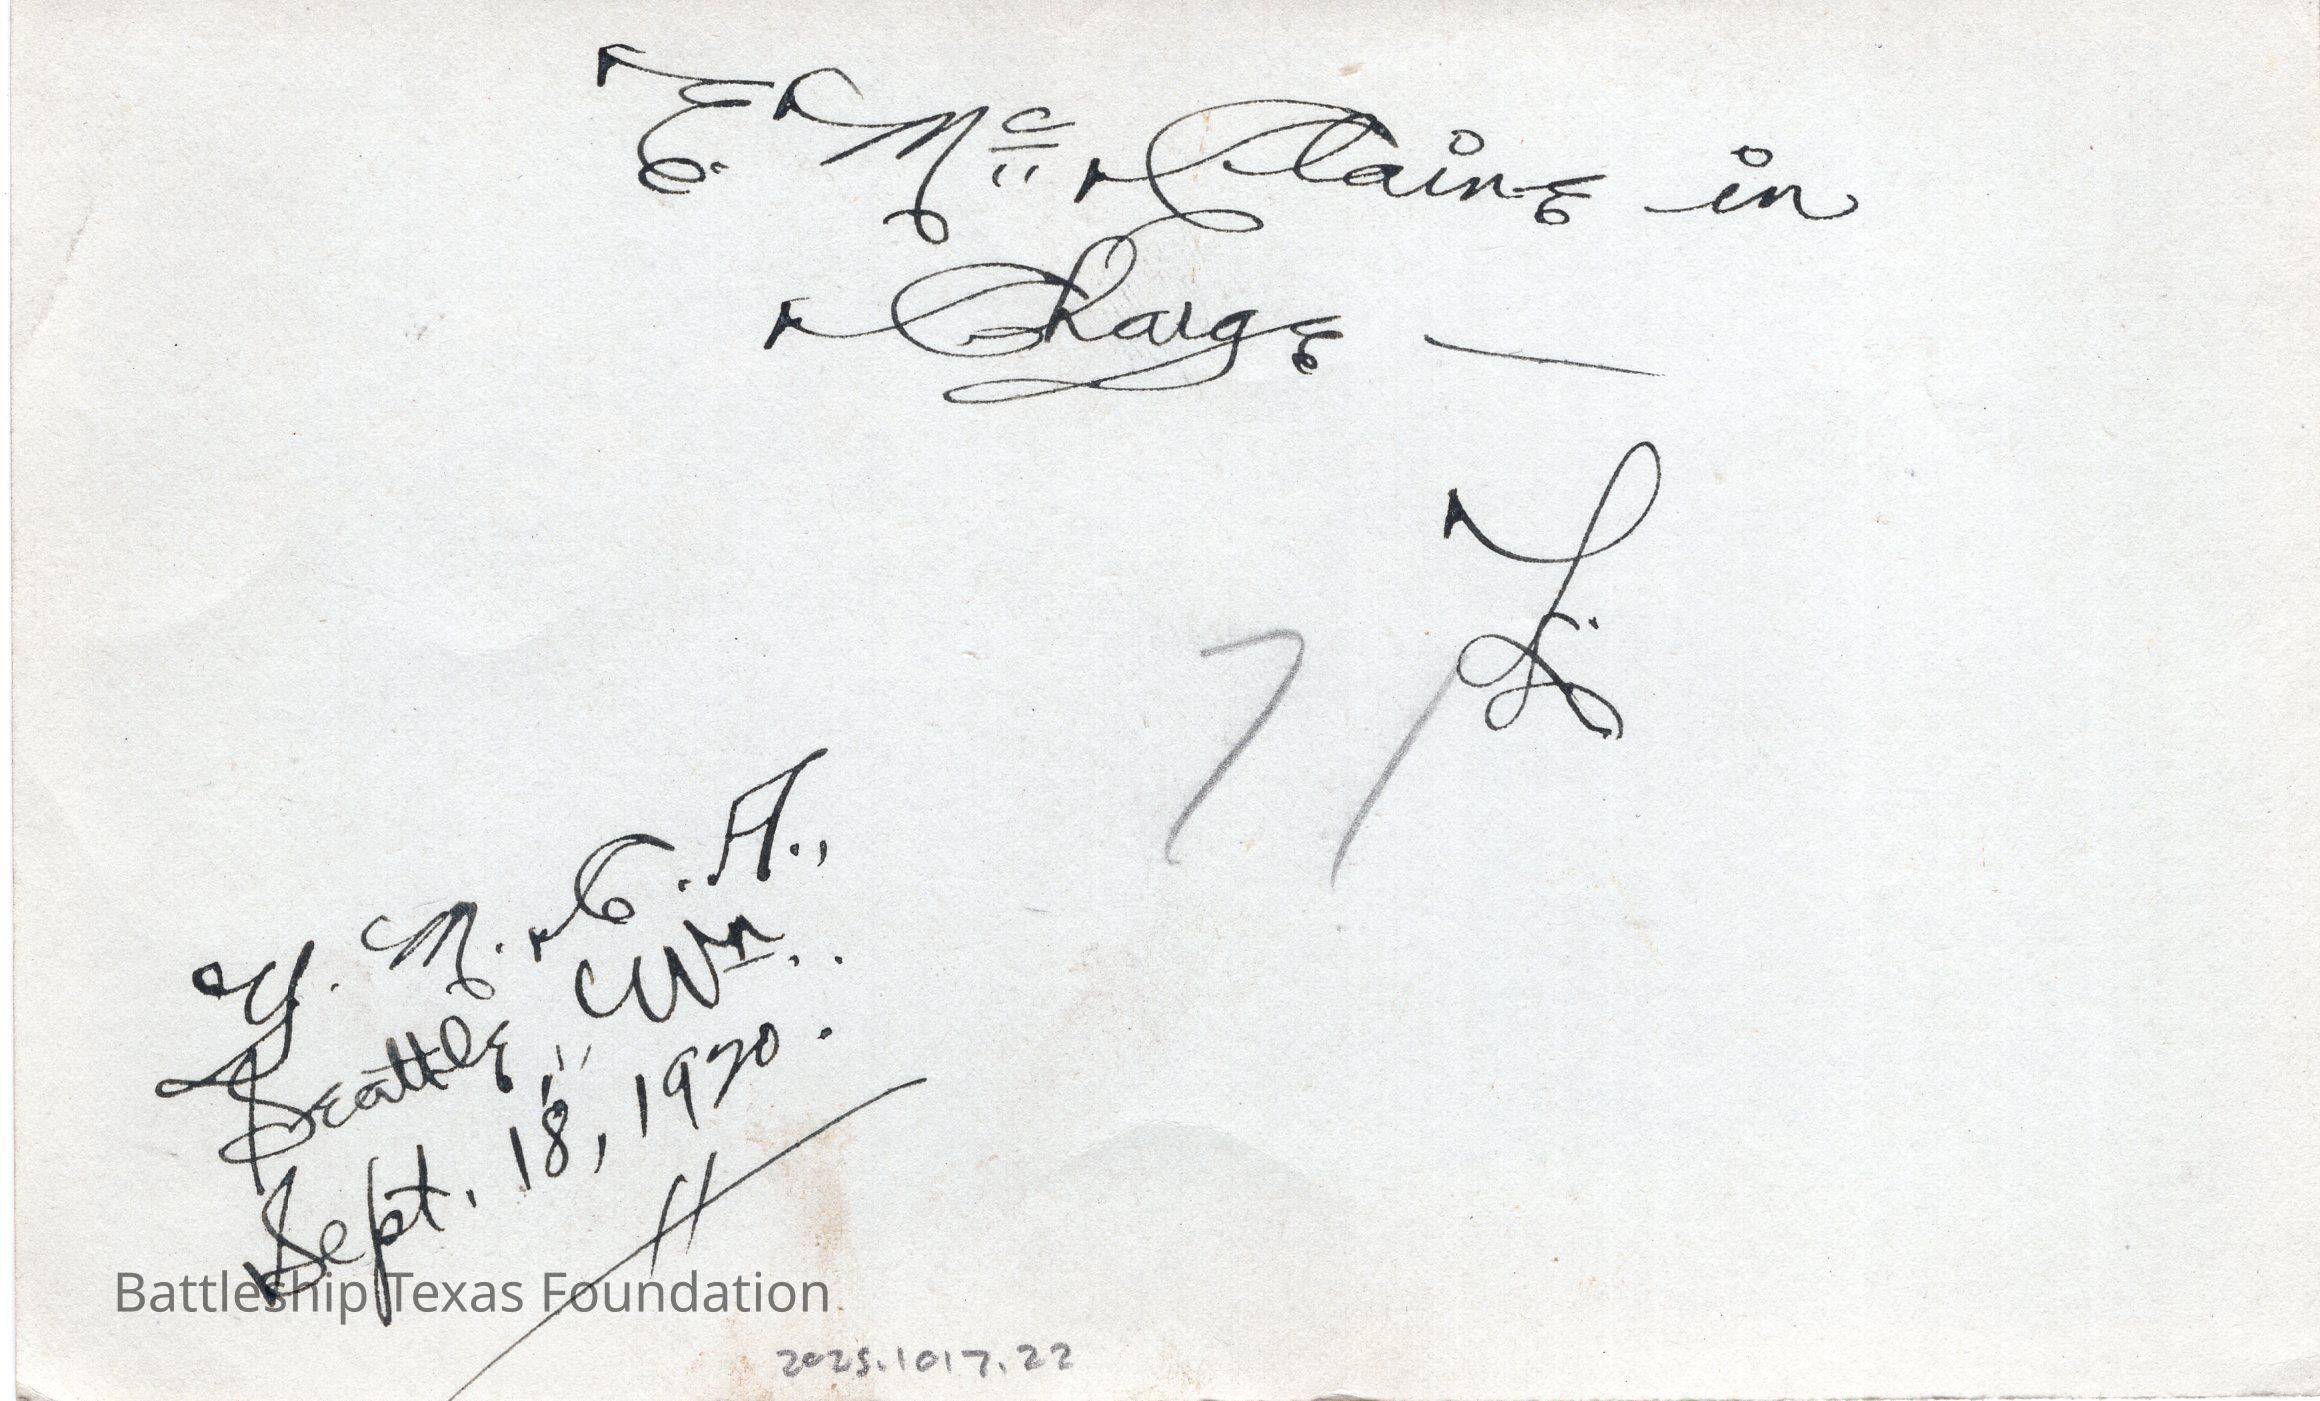 E. Mc Claine in
Charge —
L.
71
Y. M. C. A.,
Seattle, Wn..
Sept. 18, 1920.
Battleship Texas Foundation
2025.1017.22